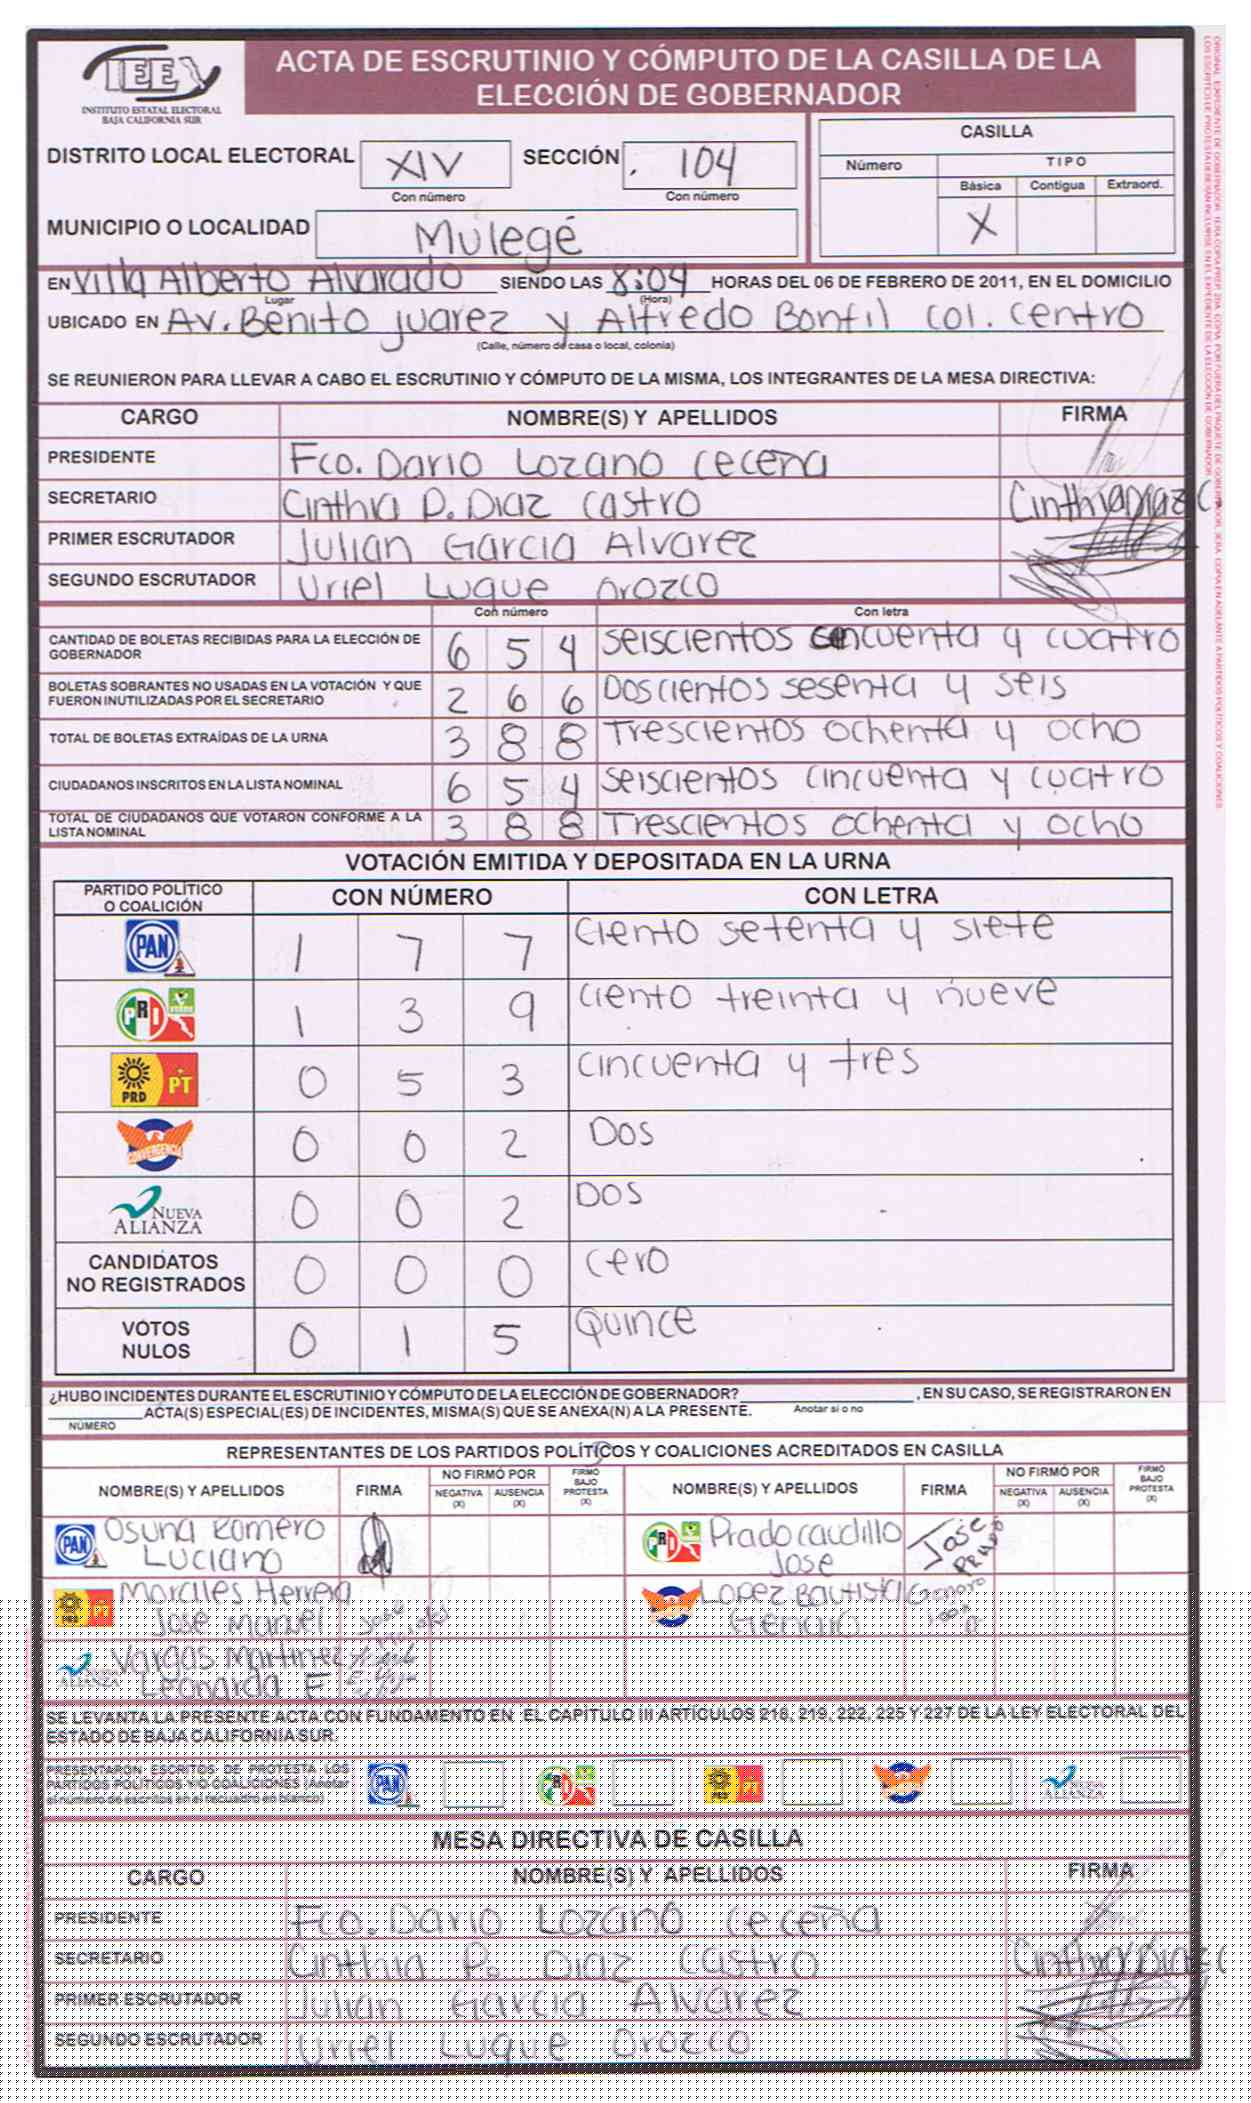 IEE
INSTITUTO ESTATAL ELECTORAL
BAJA CALIFORNIA SUR
ACTA DE ESCRUTINIO Y CÓMPUTO DE LA CASILLA DE LA
ELECCIÓN DE GOBERNADOR
DISTRITO LOCAL ELECTORAL XIV SECCIÓN 104
Con número Con número
MUNICIPIO O LOCALIDAD Mulegé
CASILLA
Número TIPO
Básica Contigua Extraord.
X
EN Villa Alberto Alvarado SIENDO LAS 8:04 HORAS DEL 06 DE FEBRERO DE 2011, EN EL DOMICILIO
Lugar (Hora)
UBICADO EN Av. Benito juarez y Alfredo Bonfil col. centro
(Calle, número de casa o local, colonia)
SE REUNIERON PARA LLEVAR A CABO EL ESCRUTINIO Y CÓMPUTO DE LA MISMA, LOS INTEGRANTES DE LA MESA DIRECTIVA:
CARGO NOMBRE(S) Y APELLIDOS FIRMA
PRESIDENTE Fco. Dario Lozano ceceña
SECRETARIO Cinthia P. Diaz castro Cinthia Diaz C.
PRIMER ESCRUTADOR Julian Garcia Alvarez
SEGUNDO ESCRUTADOR Uriel Luque orozco
Con número Con letra
CANTIDAD DE BOLETAS RECIBIDAS PARA LA ELECCIÓN DE
GOBERNADOR 6 5 4 seiscientos cincuenta y cuatro
BOLETAS SOBRANTES NO USADAS EN LA VOTACIÓN Y QUE
FUERON INUTILIZADAS POR EL SECRETARIO 2 6 6 Doscientos sesenta y seis
TOTAL DE BOLETAS EXTRAÍDAS DE LA URNA 3 8 8 Trescientos ochenta y ocho
CIUDADANOS INSCRITOS EN LA LISTA NOMINAL 6 5 4 seiscientos cincuenta y cuatro
TOTAL DE CIUDADANOS QUE VOTARON CONFORME A LA
LISTA NOMINAL 3 8 8 Trescientos ochenta y ocho
VOTACIÓN EMITIDA Y DEPOSITADA EN LA URNA
PARTIDO POLÍTICO
O COALICIÓN CON NÚMERO CON LETRA
PAN 1 7 7 ciento setenta y siete
PRI 1 3 9 ciento treinta y nueve
PRD PT 0 5 3 cincuenta y tres
CONVERGENCIA 0 0 2 Dos
NUEVA
ALIANZA 0 0 2 Dos
CANDIDATOS
NO REGISTRADOS 0 0 0 cero
VOTOS
NULOS 0 1 5 Quince
¿HUBO INCIDENTES DURANTE EL ESCRUTINIO Y CÓMPUTO DE LA ELECCIÓN DE GOBERNADOR? , EN SU CASO, SE REGISTRARON EN
ACTA(S) ESPECIAL(ES) DE INCIDENTES, MISMA(S) QUE SE ANEXA(N) A LA PRESENTE. Anotar si o no
NÚMERO
REPRESENTANTES DE LOS PARTIDOS POLÍTICOS Y COALICIONES ACREDITADOS EN CASILLA
NOMBRE(S) Y APELLIDOS FIRMA NO FIRMÓ POR NEGATIVA (X) AUSENCIA (X) FIRMÓ BAJO PROTESTA (X) NOMBRE(S) Y APELLIDOS FIRMA NO FIRMÓ POR NEGATIVA (X) AUSENCIA (X) FIRMÓ BAJO PROTESTA (X)
PAN Osuna Romero
Luciano
PRI Prado caudillo
Jose Jose Prado
PRD PT Morales Herrera
Jose Manuel
Lopez Bautista
Genaro
ALIANZA Vargas Martinez
Leonarda E.
SE LEVANTA LA PRESENTE ACTA CON FUNDAMENTO EN EL CAPITULO III ARTÍCULOS 218, 219, 222, 225 Y 227 DE LA LEY ELECTORAL DEL
ESTADO DE BAJA CALIFORNIA SUR.
PRESENTARON ESCRITOS DE PROTESTA LOS
PARTIDOS POLÍTICOS Y/O COALICIONES (Anotar
el número de escritos en el recuadro en blanco) PAN PRI PRD PT ALIANZA
MESA DIRECTIVA DE CASILLA
CARGO NOMBRE(S) Y APELLIDOS FIRMA
PRESIDENTE Fco. Dario Lozano ceceña
SECRETARIO Cinthia P. Diaz Castro Cinthia Diaz C
PRIMER ESCRUTADOR Julian Garcia Alvarez
SEGUNDO ESCRUTADOR Uriel Luque Orozco